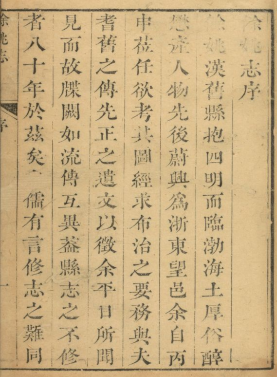 餘姚志序
餘姚漢舊縣抱四明而臨渤海土厚俗醇
懋產人物先後蔚興爲浙東望邑余自丙
申莅任欲考其圖經求布治之要務與夫
耆舊之傳先正之遺文以徵余平日所聞
見而故牒闕如流傳互異蓋縣志之不修
者八十年於茲矣 儒有言修志之難同
餘姚志
序
一